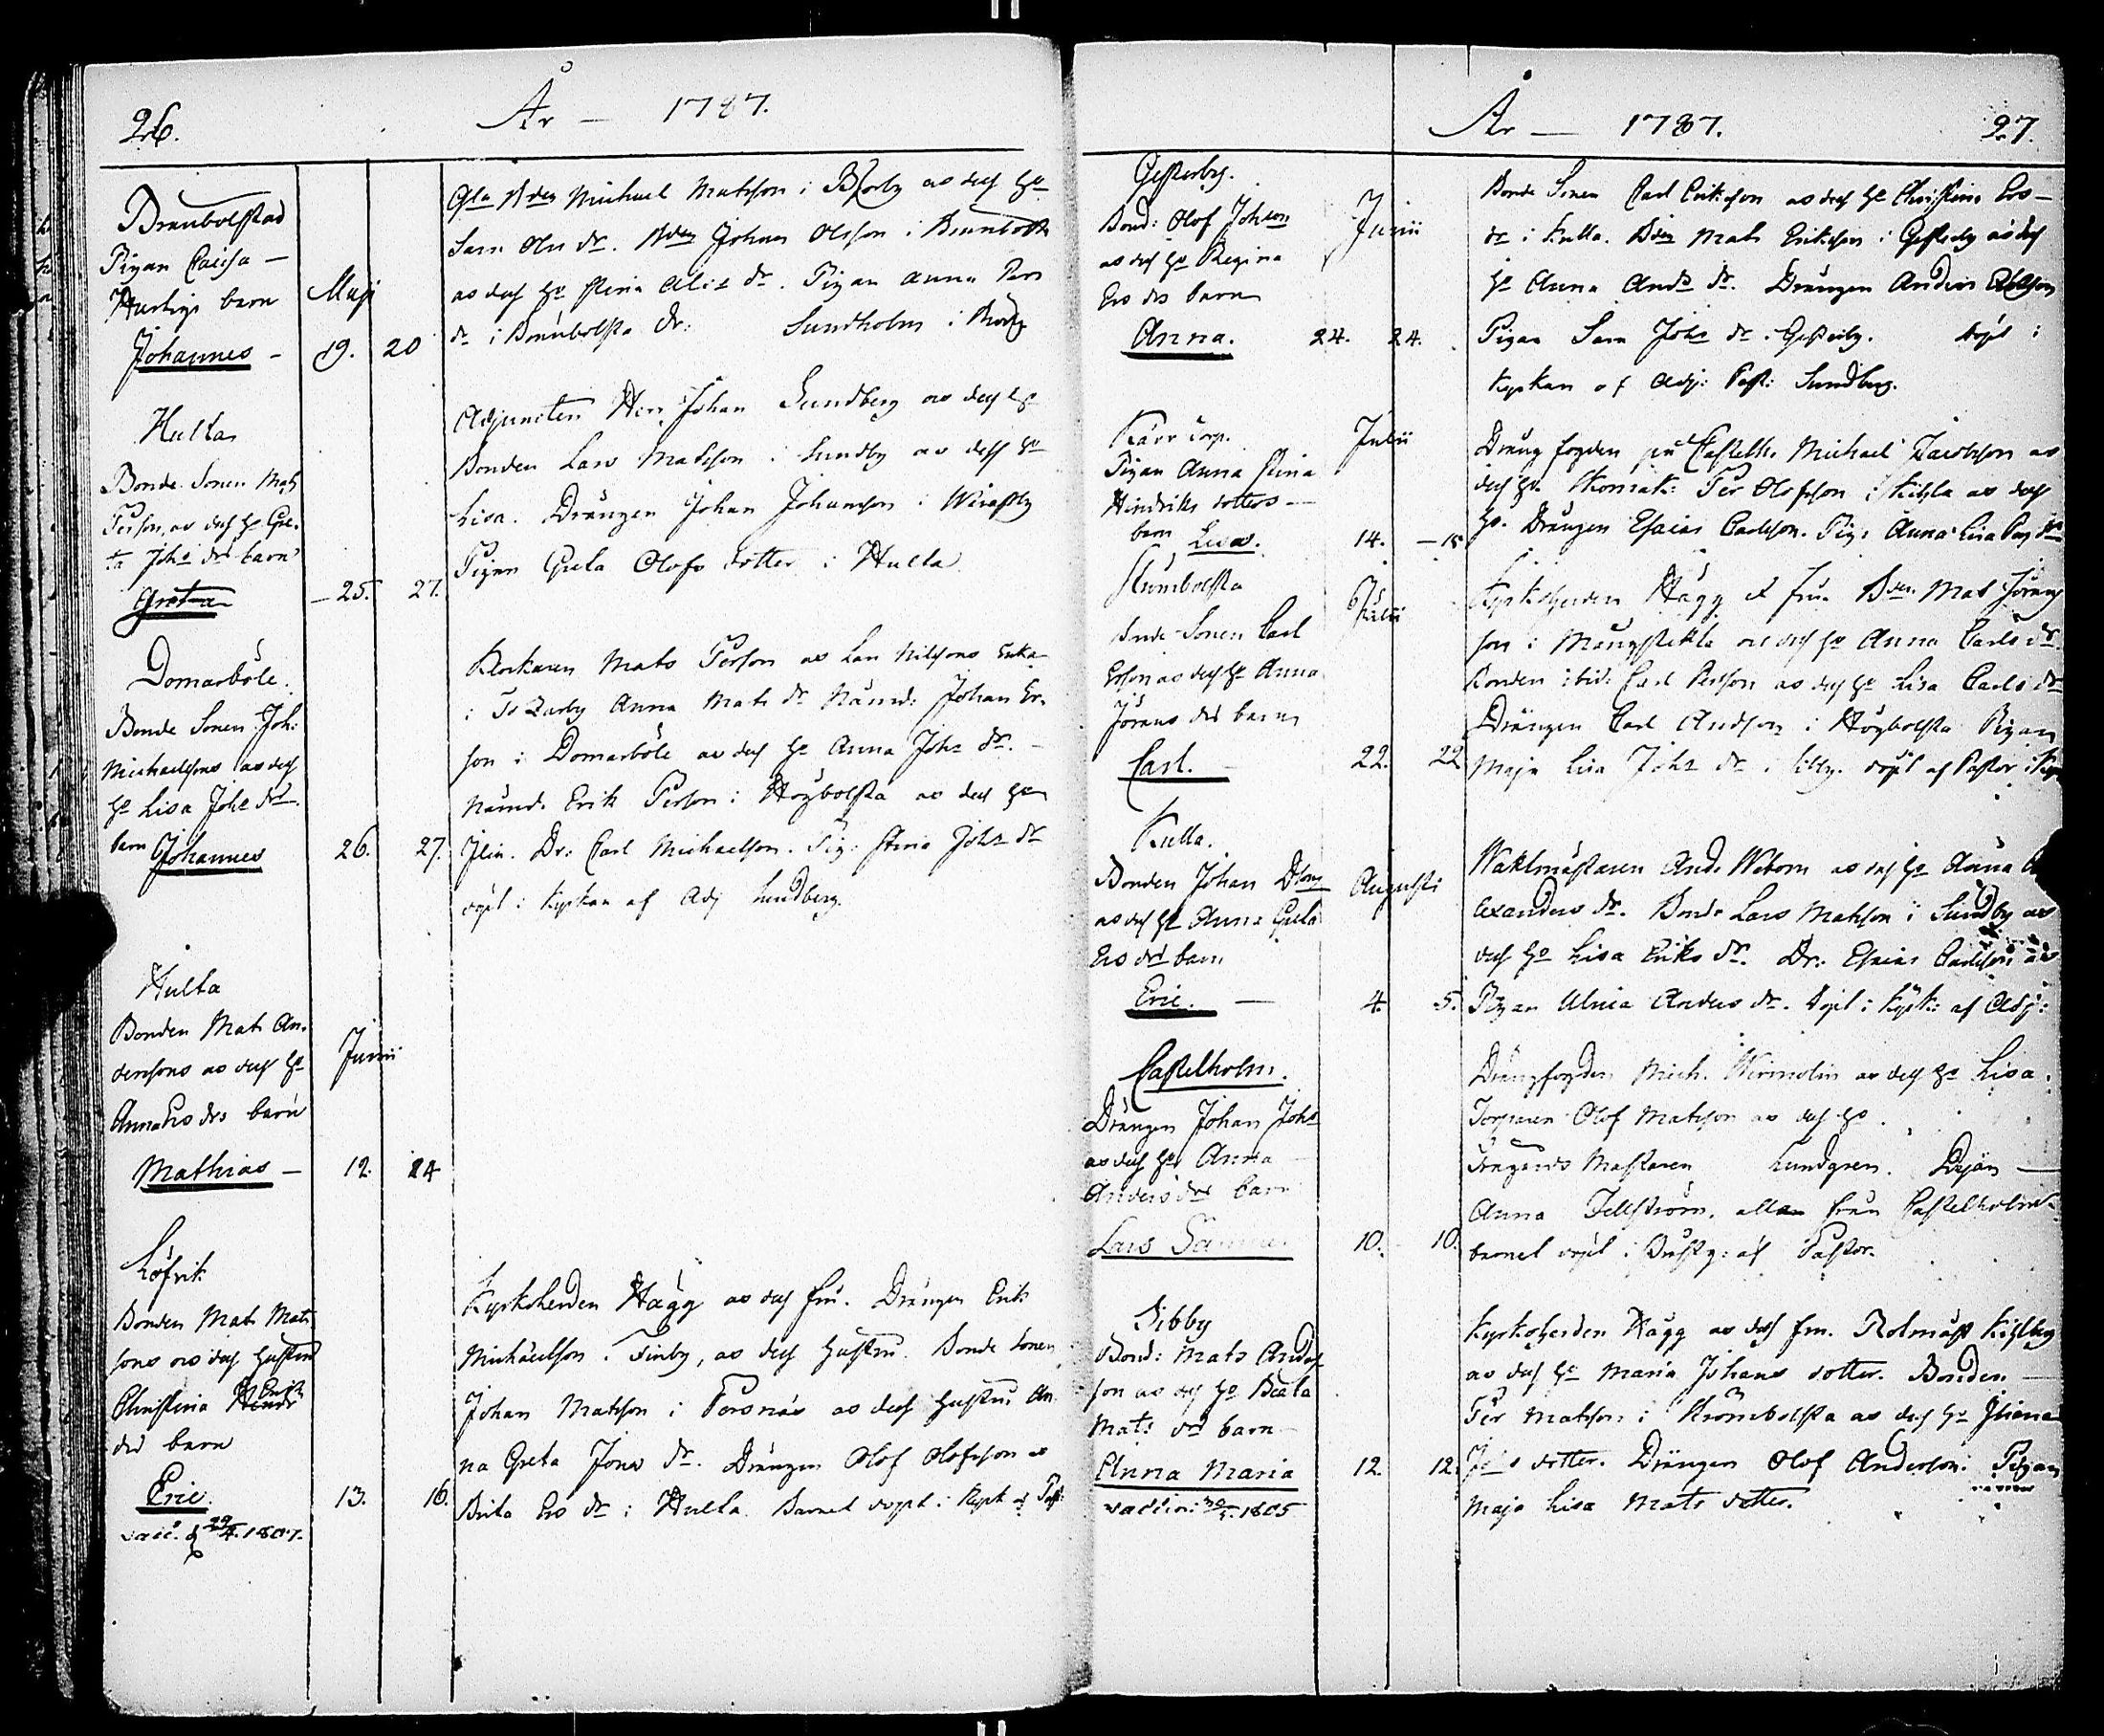 26.
År — 1787.
Brenbolstad
Pigan Caisa —
barn
Johannes —
Maji
19. 20
Gla Bden Michael Matsson i Bjerby och dess H:o
Sara Ols dr. Bden Johan Olsson i
och dess H:o Stina dr. Pigan Anna Pers
dr i Dr: Sundholm i
Hulta
Bonde Sonen Mats
Persson och dess H:o Gre-
ta Joh:s drs barn
Greta
— 25. 27.
Adjuncten Herr Johan Sundberg och dess H:o
Bonden Lars Matsson i Sundby och dess H:o
Lisa. Drängen Johan Johansson i
Pigan Greta Olofs dotter i Hulta
Domarböle.
Bonde Sonen Joh:
Michaelsons och dess
H:o Lisa Joh:s drs
barn Johannes
26. 27.
Klockaren Mats Persson och Lars Nilssons Enka
i Anna Mats dr Nämnd: Johan Er-
son i Domarböle och dess H:o Anna Joh:s dr. —
Nämnd. Erik Persson i Högbolsta och dess H:o
Dr: Carl Michaelsson. Pig: Stina Joh:s dr
döpt i Kyrkan af Adj Sundberg.
Hulta
Bonden Mats An-
derssons och dess H:o
Anna Ers drs barn
Mathias —
Junii
12. 14
Löfvik
Bonden Mats Mats-
sons och dess Hustru
Christina Hindr Eriks
drs barn
Eric.
vacc. d 29/4. 1807.
13. 16.
Kyrkoherden Hägg och dess fru. Drängen Erik
Michaelsson i Finby, och dess Hustru. Bonde sonen
Johan Matsson i Persnäs och dess Hustru An-
na Greta Jons dr. Drängen Olof Olofsson o
Brita Ers dr i Hulta. Barnet döpt i Kyrk: af Past:
År — 1787. 27.
Gesterby.
Bond: Olof Johsson
och dess H:o Regina
Ers drs barn
Anna.
Junii
24. 24.
Bonde Sonen Carl Eriksson och dess H:o Christina Ers —
dr i Kulla. Bden Mats Eriksson i Gesterby och dess
H:o Anna And:s dr. Drängen Anders
Pigan Sara Joh:s dr. Gesterby. döpt i
Kyrkan af Adj: Past: Sundberg.
Kärr torp.
Pigan Anna Stina
Hindriks dotters —
barn Lisa.
Julii
14. — 15
Dräng fogden på Castelh. Michael Jacobsson och
dess H:o Skomak: Per Olofsson i Kihla och dess
H:o. Drängen Esaias Carlsson. Pig: Anna Lisa dr
Strömbolsta
Bonde Sonen Carl
Ersson och dess H:o Anna
Jörans drs barn
Carl. —
Julii
22. 22
Kyrkoherden Hägg & fru. Bden Mats Jörans
son i Mångstekta och dess H:o Anna Carls dr.
Bonden ibid: Carl Persson och dess H:o Lisa Carls dr
Drängen Carl Andsson i Högbolsta Pigan
Maja Lisa Joh:s dr i döpt af Pastor i Kyr
Kulla.
Bonden Johan
och dess H:o Anna Greta
Ers drs barn
Eric. —
Augusti
4. 5.
Waktmästaren And: Weborn och dess H:o Anna A
lexanders dr. Bond: Lars Matsson i Sundby och
dess H:o Lisa Eriks dr. Dr: Esaias Carlsson och
Pigan Ulrica Anders dr. döpt i Kyrk: af Adj:
Castelholm.
Drängen Johan Johs
och dess H:o Anna
Anders drs barn
Lars
10. 10.
Drängfogden Mich. Wirmolin och dess H:o Lisa.
Torparen Olof Matsson och dess H:o.
Mästaren Lundgren. Pigan —
Anna Fellström. alla från Castelholm
barnet döpt i af Pastor.
Sibby
Bond: Mats Anders
son och dess H:o Beata
Mats drs barn
Anna Maria
vaccin: 1805
12. 12.
Kyrkoherden Hägg och dess fru. Rotmäst Kihlberg
och dess H:o Maria Johans dotter. Bonden —
Per Matsson i Strömbolsta och dess H:o
dotter. Drängen Olof Andersson: Pigan
Maja Lisa Mats dotter.